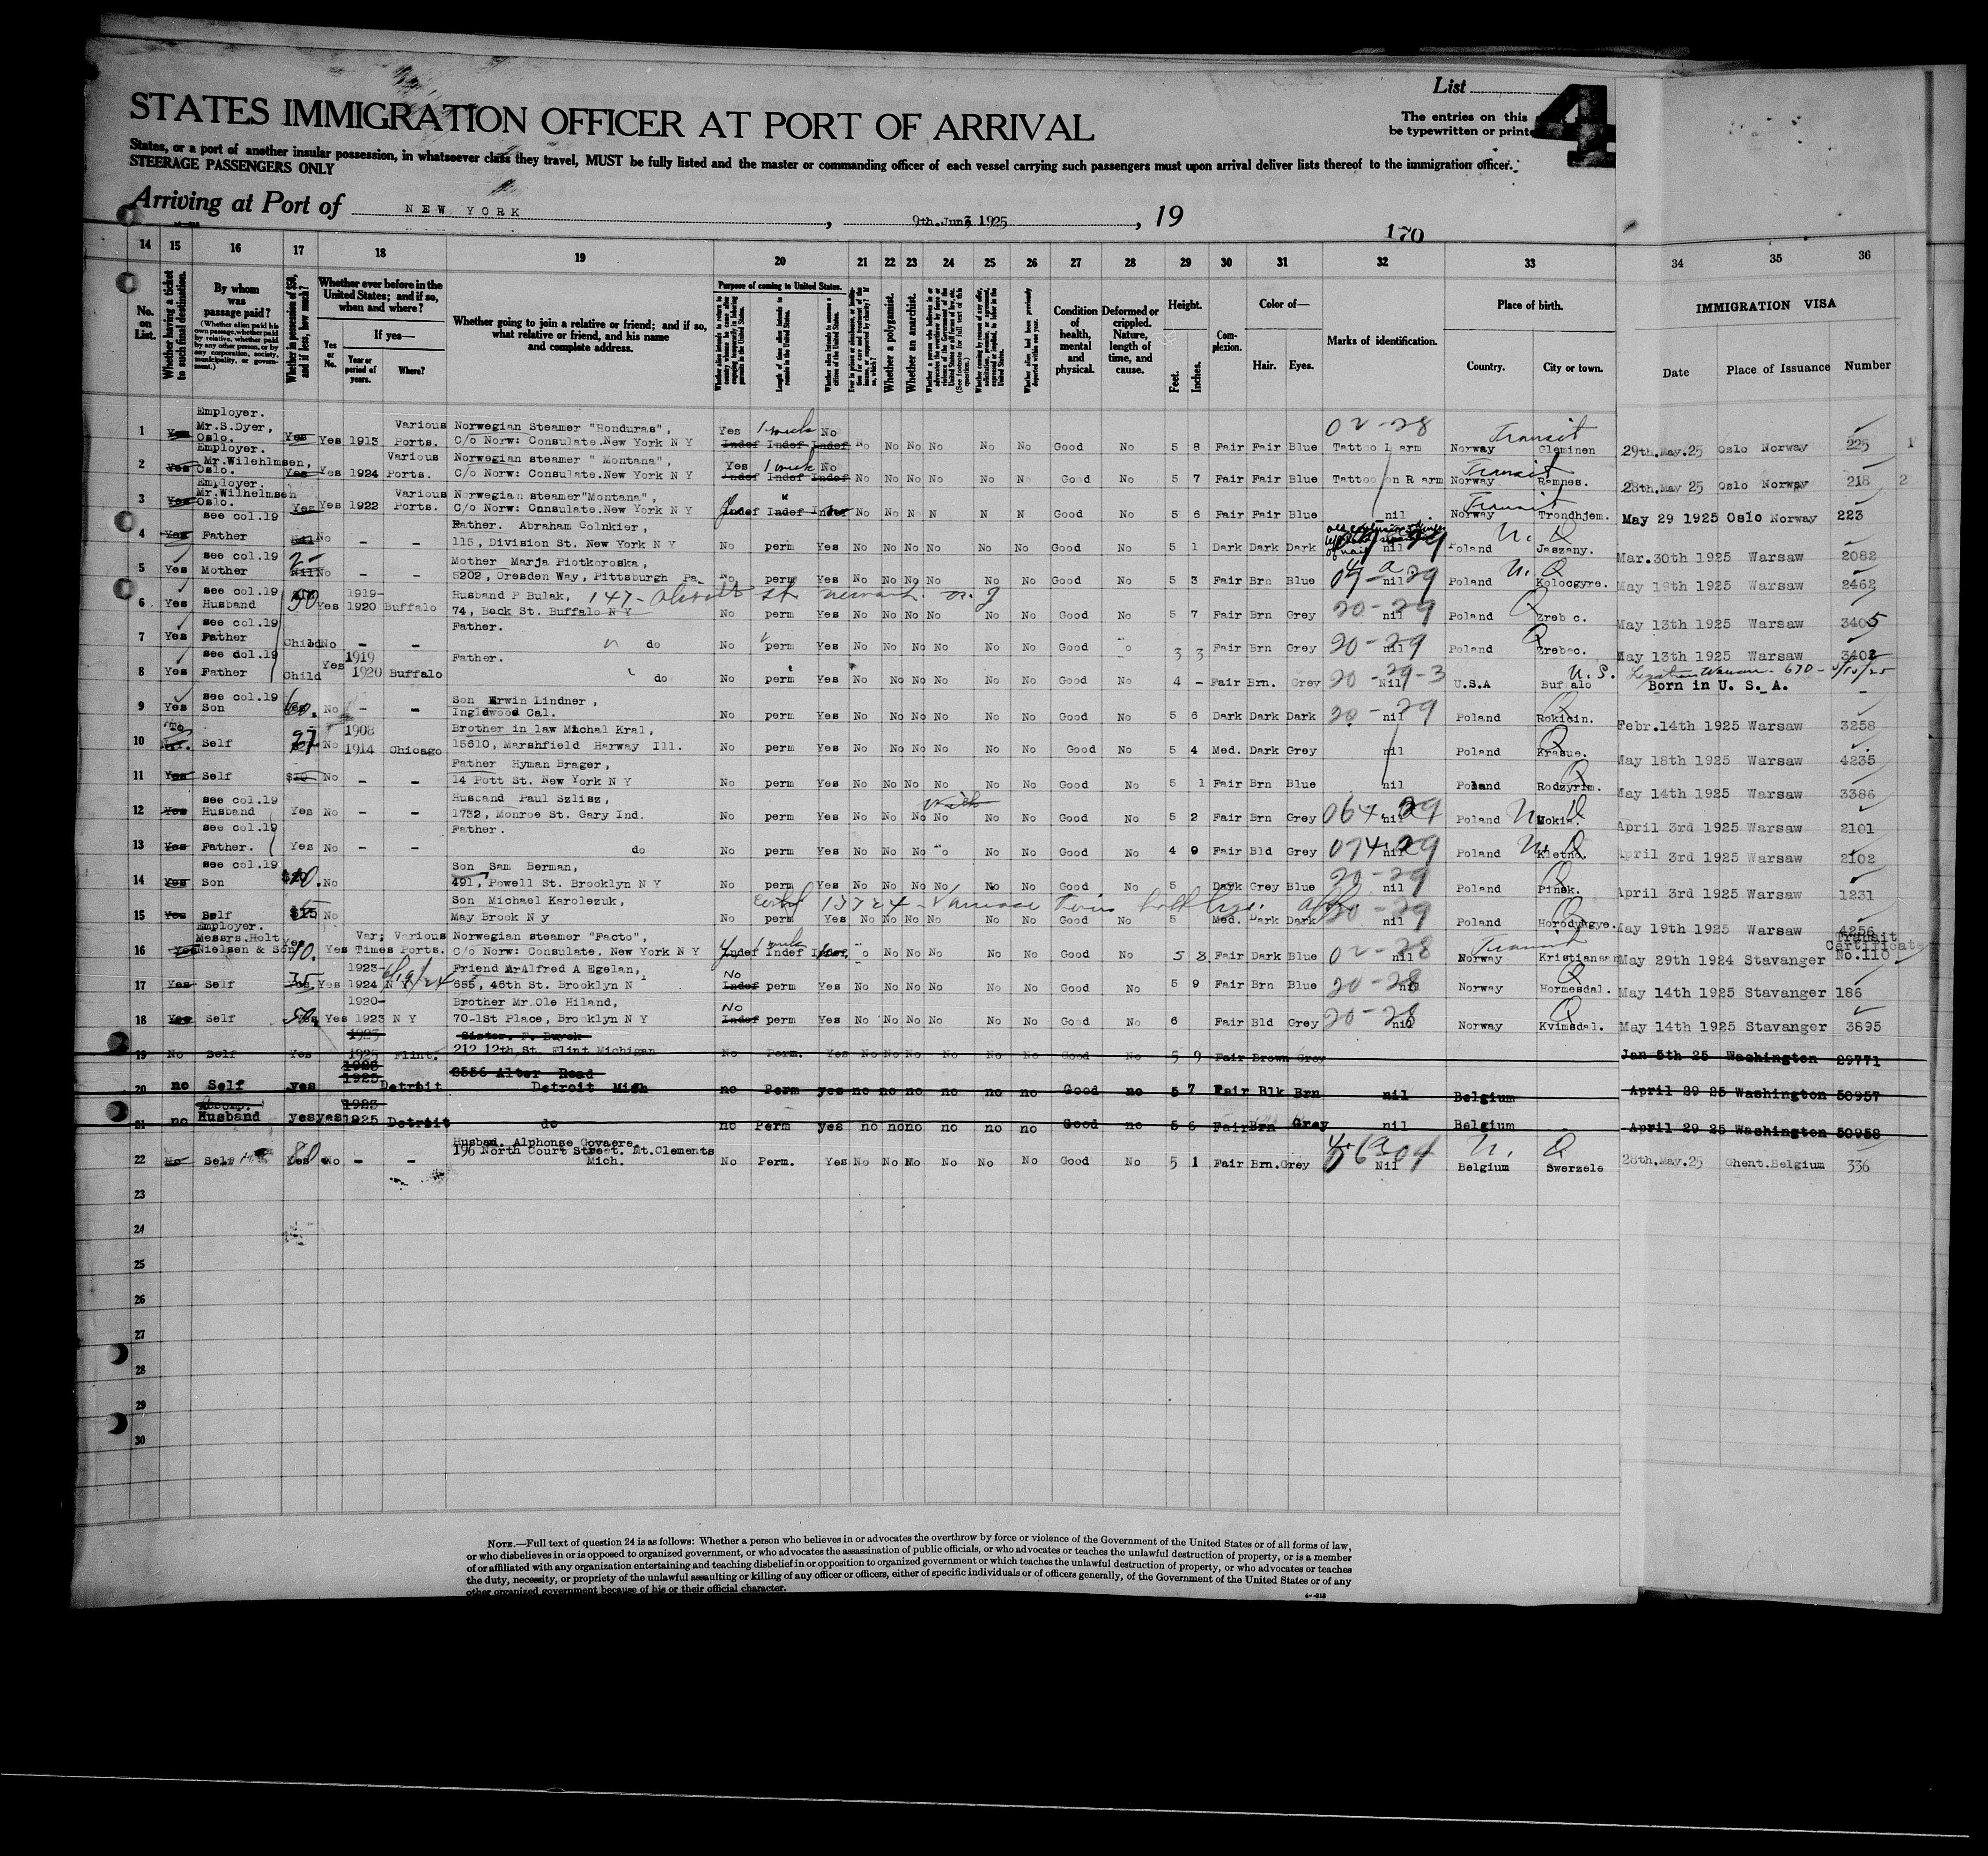 List
4
STATES IMMIGRATION OFFICER AT PORT OF ARRIVAL
The entries on this
be typewritten or printe
States, or a port of another insular possession, in whatsoever class they travel, MUST be fully listed and the master or commanding officer of each vessel carrying such passengers must upon arrival deliver lists thereof to the immigration officer.
STEERAGE PASSENGERS ONLY
Arriving at Port of NEW YORK, 9th. June 1925, 19
170
14 15 16 17 18 19 20 21 22 23 24 25 26 27 28 29 30 31 32 33 34 35 36
No. on List.
Whether having a ticket to such final destination.
By whom was passage paid?
(Whether alien paid his own passage, whether paid by relative, whether paid by any other person, or by any corporation, society, municipality, or government.)
Whether in possession of $50, and if less, how much?
Whether ever before in the United States; and if so, when and where?
If yes—
Yes or No.
Year or period of years.
Where?
Whether going to join a relative or friend; and if so, what relative or friend, and his name and complete address.
Purpose of coming to United States.
Length of time alien intends to remain in the United States.
Whether alien intends to become a citizen of the United States.
Whether a polygamist.
Whether an anarchist.
Condition of health, mental and physical.
Deformed or crippled. Nature, length of time, and cause.
Height.
Feet. Inches.
Complexion.
Color of—
Hair. Eyes.
Marks of identification.
Place of birth.
Country. City or town.
IMMIGRATION VISA
Date Place of Issuance Number
1 Yes Employer. Mr.S.Dyer, Oslo. Yes Yes 1913 Various Ports. Norwegian Steamer "Honduras", C/o Norw: Consulate.New York N Y Yes 1 week No Indef Indef Indef No No No No No No Good No 5 8 Fair Fair Blue 02-28 Tattoo L arm Norway Transit Gleminen 29th.May.25 Oslo Norway 225
2 Yes Employer. Mr.Wilehlmsen, Oslo. Yes Yes 1924 Various Ports. Norwegian steamer " Montana", C/o Norw: Consulate.New York N Y Yes 1 week No Indef Indef Indef No No No No No No Good No 5 7 Fair Fair Blue Tattoo on R arm Norway Transit Ramnes. 28th.May 25 Oslo Norway 218 2
3 Yes Employer. Mr.Wilhelmsen Oslo. Yes Yes 1922 Various Ports. Norwegian steamer"Montana", C/o Norw: Consulate.New York N Y Indef Indef Indef No No N N N N Good No 5 6 Fair Fair Blue nil Norway Transit Trondhjem. May 29 1925 Oslo Norway 223
4 Yes see col.19 Father Nil No - - Father. Abraham Golnkier, 115, Division St. New York N Y No perm Yes No No No No No No Good No 5 1 Dark Dark Dark nil Poland Jaszany. Mar.30th 1925 Warsaw 2082
5 Yes see col.19 Mother Nil No - - Mother Marja Piotkoroska, 5202, Dresden Way, Pittsburgh Pa. No perm Yes No No No No No No Good No 5 3 Fair Brn Blue nil Poland Kolocgyre. May 19th 1925 Warsaw 2462
6 Yes see col.19 Husband 50 Yes 1919-1920 Buffalo Husband P Bulak, 74, Beck St. Buffalo N Y No perm Yes No No No No No No Good No 5 7 Fair Brn Grey 20-29 nil Poland Zreb c. May 13th 1925 Warsaw 3405
7 Yes see col.19 Father Child No - - Father. do No perm Yes No No No No No No Good 3 3 Fair Brn Grey 20-29 nil Poland Zrebec. May 13th 1925 Warsaw 3402
8 Yes see col.19 Father Child Yes 1919 1920 Buffalo Father. do No perm Yes No No No No No No Good No 4 - Fair Brn. Grey 20-29-3 Nil U.S.A Buf alo U.S. Born in U. S. A. -
9 Yes see col.19 Son 60. No - - Son Erwin Lindner, Inglewood Cal. No perm Yes No No No No No No Good No 5 6 Dark Dark Dark 20-29 nil Poland Rokicin. Febr.14th 1925 Warsaw 3258
10 Self 27 No 1908 1914 Chicago Brother in law Michal Kral, 15610, Marshfield Harway Ill. No perm Yes No No No No No No Good No 5 4 Med. Dark Grey nil Poland Krasue. May 18th 1925 Warsaw 4235
11 Yes Self No - - Father Hyman Brager, 14 Pott St. New York N Y No perm Yes No No No No No No Good No 5 1 Fair Brn Blue nil Poland Rodzyrim. May 14th 1925 Warsaw 3386
12 Yes see col.19 Husband Yes No - - Husband Paul Szlisz, 1732, Monroe St. Gary Ind. No perm Yes No No No No No No Good No 5 2 Fair Brn Grey nil Poland Mokia. April 3rd 1925 Warsaw 2101
13 Yes see col.19 Father Yes No - - Father. do No perm Yes No No No No No Good No 4 9 Fair Bld Grey nil Poland Kletno. April 3rd 1925 Warsaw 2102
14 Yes see col.19 Son No Son Sam Berman, 491, Powell St. Brooklyn N Y No perm Yes No No No No No No Good No 5 Dark Grey Blue 20-29 nil Poland Pinsk. April 3rd 1925 Warsaw 1231
15 Yes Self $15 No Son Michael Karolezuk, May Brook N y No perm Yes No No No No No No Good No 5 Med. Dark Dark 20-29 nil Poland Horodyngye. May 19th 1925 Warsaw 4256
16 Yes Employer. Messrs.Holt Nielsen & Son Yes 40. Yes Var; Times Various Ports. Norwegian steamer "Facto", C/o Norw: Consulate. New York N Y 1 week Indef Indef Indef No No No No No Good No 5 8 Fair Dark Blue 02-28 nil Norway Transit Kristiansan May 29th 1924 Stavanger Transit Certificate No.110
17 Yes Self Yes 1923-1924 N Y Friend Mr Alfred A Egelan, 655, 46th St. Brooklyn N No Indef perm Yes No No No No No No Good No 5 9 Fair Brn Blue 20-28 nil Norway Hormesdal. May 14th 1925 Stavanger 186
18 Yes Self 50 Yes 1920-1923 N Y Brother Mr.Ole Hiland, 70-1St Place, Brooklyn N Y No Indef perm Yes No No No No No No Good No 6 Fair Bld Grey 20-28 nil Norway Kvimsdal. May 14th 1925 Stavanger 3895
19 No Self Yes 1923 1925 Flint. Sister. F. Buyck 212 12th,St. Flint Michigan No Perm. Yes No No No No No No Good No 5 9 Fair Brown Grey Jan 5th 25 Washington 29771
20 no Self yes 1923 1925 Detroit 2556 Alter Road Detroit Mich no Perm yes no no no no no no Good no 5 7 Fair Blk Brn nil Belgium April 29 25 Washington 50957
21 no Accomp. Husband yes yes 1923 1925 Detroit do no Perm yes no no no no no no Good no 5 6 Fair Brn Grey nil Belgium - April 29 25 Washington 50958
22 No Self Yes No - - Husban. Alphonse Govaere, 196 North Court Street. Mt.Clements Mich. No Perm. Yes No No No No No No Good No 5 1 Fair Brn.Grey Nil Belgium Swerzele 28th.May.25 Ghent.Belgium 336
23
24
25
26
27
28
29
30
NOTE.—Full text of question 24 is as follows: Whether a person who believes in or advocates the overthrow by force or violence of the Government of the United States or of all forms of law,
or who disbelieves in or is opposed to organized government, or who advocates the assassination of public officials, or who advocates or teaches the unlawful destruction of property, or is a member
of or affiliated with any organization entertaining and teaching disbelief in or opposition to organized government or which teaches the unlawful destruction of property, or who advocates or teaches
the duty, necessity, or propriety of the unlawful assaulting or killing of any officer or officers, either of specific individuals or of officers generally, of the Government of the United States or of any
other organized government because of his or their official character.